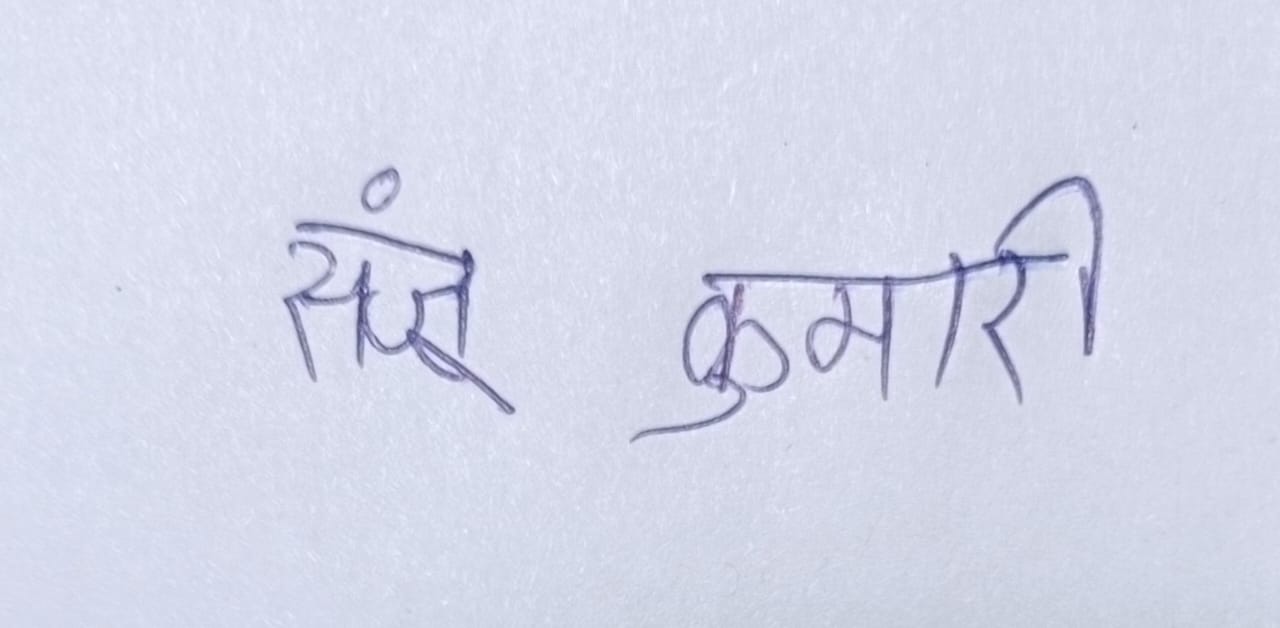 संजू कुमारी